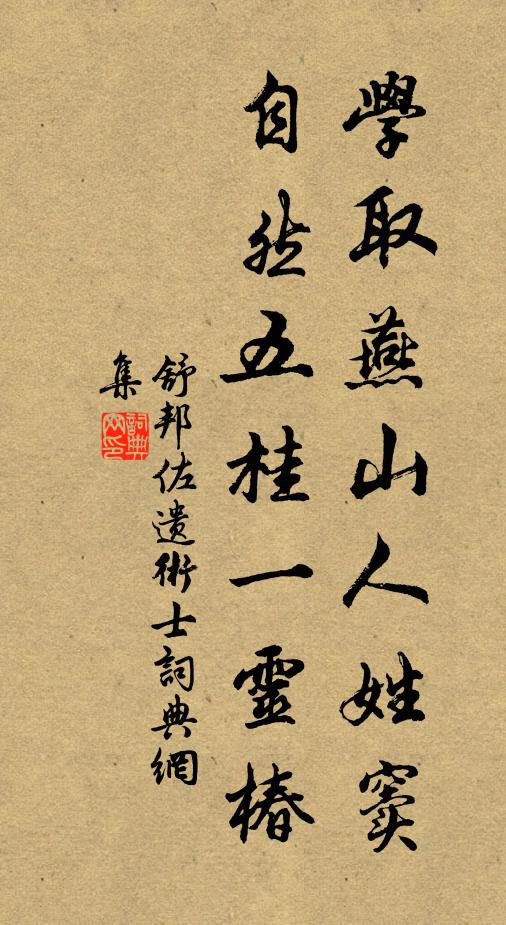 學取燕山人姓竇
自然五桂一靈椿
舒邦佐遺術士詞典網
集
詞典網印